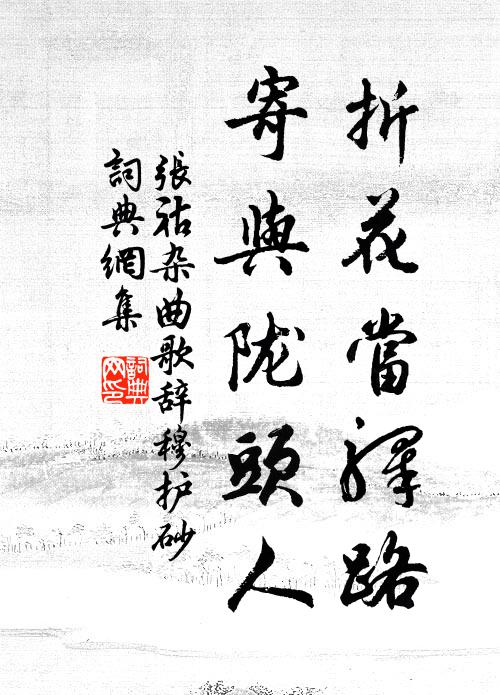 折花當驛路
寄與陇頭人
張祜杂曲歌辞穆护砂
詞典網集
詞典網印